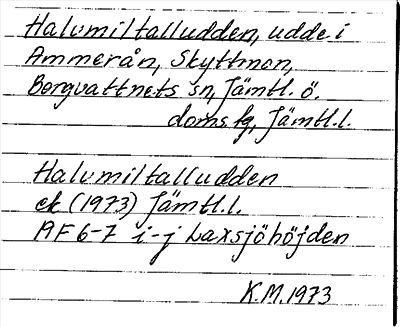 Halvmiltalludden, udde i
Ammerån, Skyttmon,
Borgvattnets sn, Jämtl. ö.
doms. fg, Jämtl. l.
Halvmiltalludden
ek (1973) Jämtl. l.
AF 6-7 i-j Laxsjöhöjden
K.M. 1973